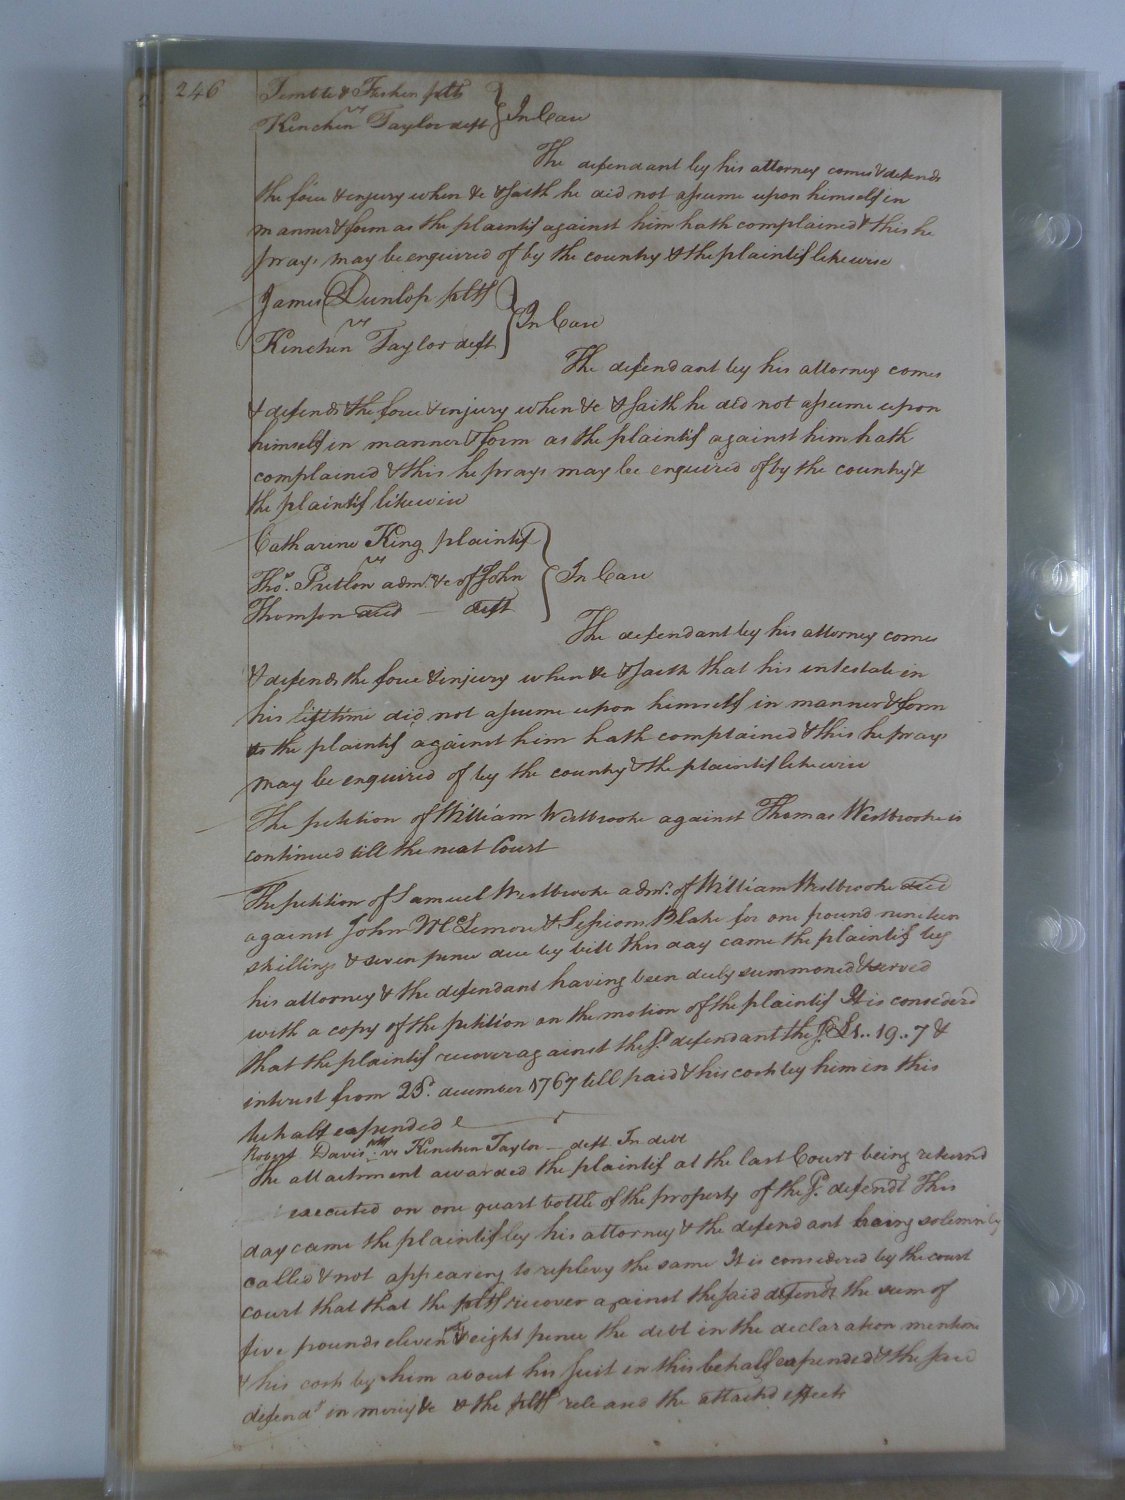 246
Temble & Fisher plts
vs } In Case
Kinchin Taylor deft
The defendant by his attorney comes & defends
the force & injury when &c & saith he did not assume upon himself in
manner & form as the plaintif against him hath complained & this he
prays may be enquired of by the country & the plaintif likewise
James Dunlop pltf
vs } In Case
Kinchin Taylor deft
The defendant by his attorney comes
& defends the force & injury when &c & saith he did not assume upon
himself in manner & form as the plaintif against him hath
complained & this he prays may be enquired of by the country &
the plaintif likewise
Catharine King plaintif
vs
Thos. Pretlow admr. &c of John } In Case
Thomson decd — deft
The defendant by his attorney comes
& defends the force & injury when &c & saith that his intestate in
his lifetime did not assume upon himself in manner & form
as the plaintif against him hath complained & this he prays
may be enquired of by the country & the plaintif likewise
The petition of William Westbrooke against Thomas Westbrooke is
continued till the next Court
The petition of Samuel Westbrooke admr. of William Westbrooke decd
against John McLemore & Sessions Blake for one pound nineteen
shillings & seven pence due by bill this day came the plaintif by
his attorney & the defendant having been duly summoned & served
with a copy of the petition on the motion of the plaintif It is considerd
that the plaintif recover against the sd. defendant the sd. £1..19..7 &
interest from 25th. december 1767 till paid & his costs by him in this
behalf expended
Robert Davis pltf vs Kinchin Taylor — deft In debt
The attachment awarded the plaintif at the last Court being returnd
executed on one quart bottle of the property of the sd. defendt This
day came the plaintif by his attorney & the defendant being solemnly
called & not appearing to replevy the same It is considered by the court
court that that the pltf recover against the said defendt the sum of
five pounds eleven & eight pence the debt in the declaration mentione
& his costs by him about his suit in this behalf expended & the said
defendt in mercy &c & the pltf releases the attachd effects